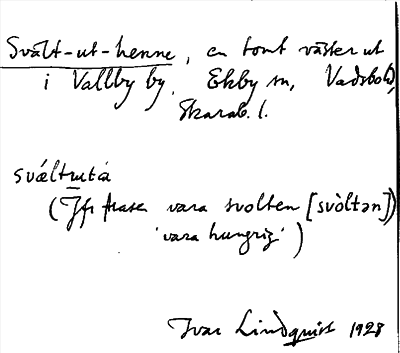 Svält-ut-henne, en tomt väster ut
i Vallby by, Ekby sn, Vadsbo hd,
Skarab. l.
svä́ltuta
(Jfr frasen vara svolten [svòltən]
'vara hungrig')
Ivar Lindquist 1928